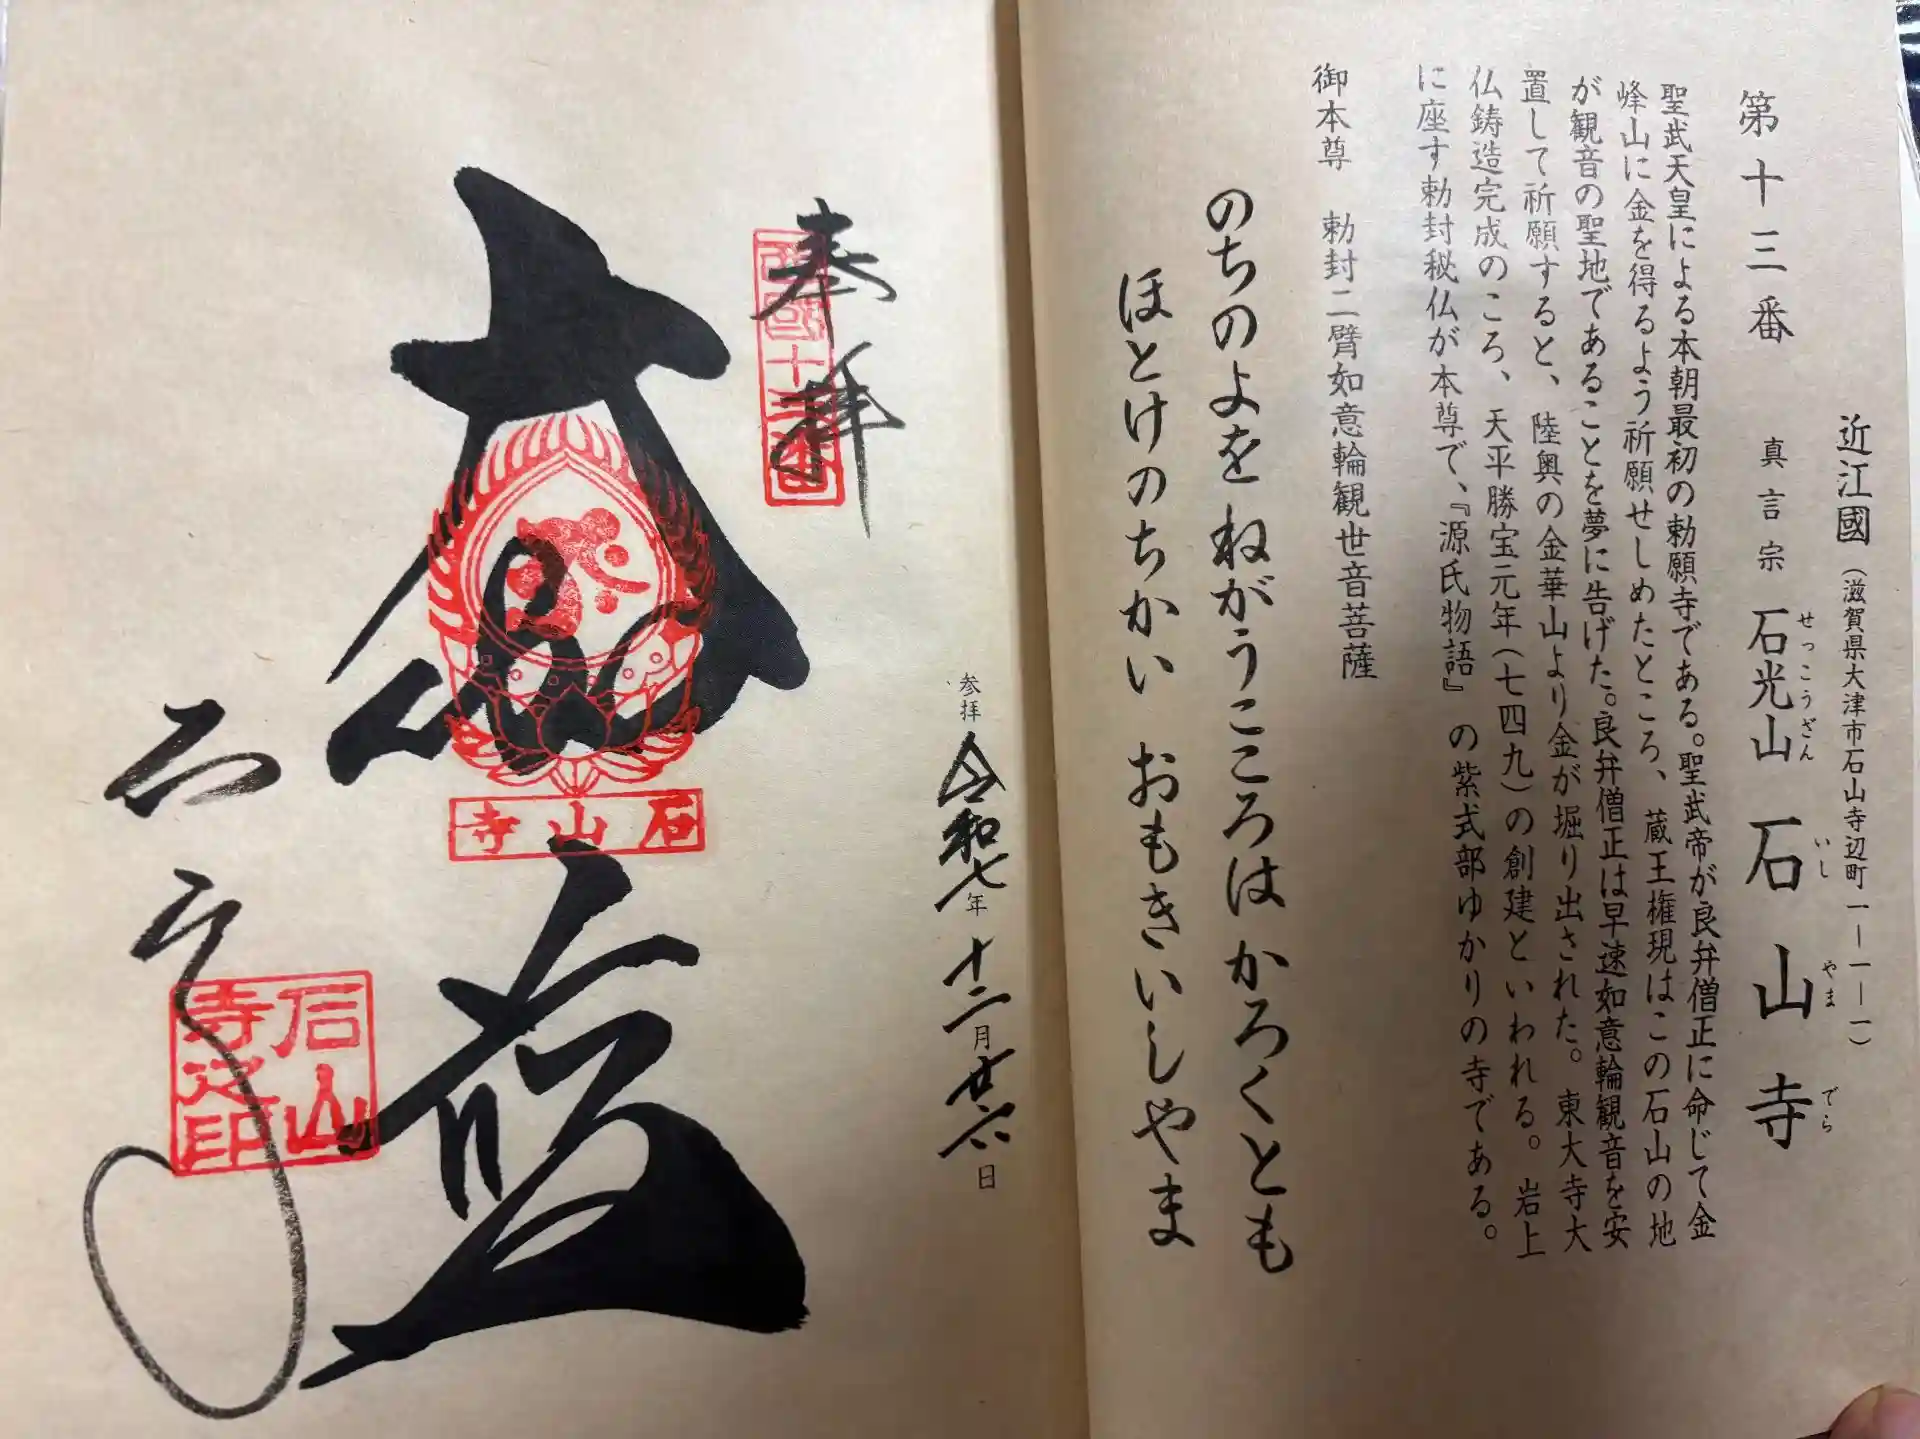 近江國(滋賀県大津市石山寺辺町一ー一ー一)
第十三番 真言宗 石光山 石山寺
せっこうざん いしやまでら
聖武天皇による本朝最初の勅願寺である。聖武帝が良弁僧正に命じて金
峰山に金を得るよう祈願せしめたところ、蔵王権現はこの石山の地
が観音の聖地であることを夢に告げた。良弁僧正は早速如意輪観音を安
置して祈願すると、陸奥の金華山より金が堀り出された。東大寺大
仏鋳造完成のころ、天平勝宝元年(七四九)の創建といわれる。岩上
に座す勅封秘仏が本尊で、『源氏物語』の紫式部ゆかりの寺である。
御本尊 勅封二臂如意輪観世音菩薩
のちのよを ねがうこころは かろくとも
ほとけのちかい おもきいしやま
参拝 令和七年 十二月 廿六日
奉拝
西国十三番
石山寺
石山寺
石山寺之印